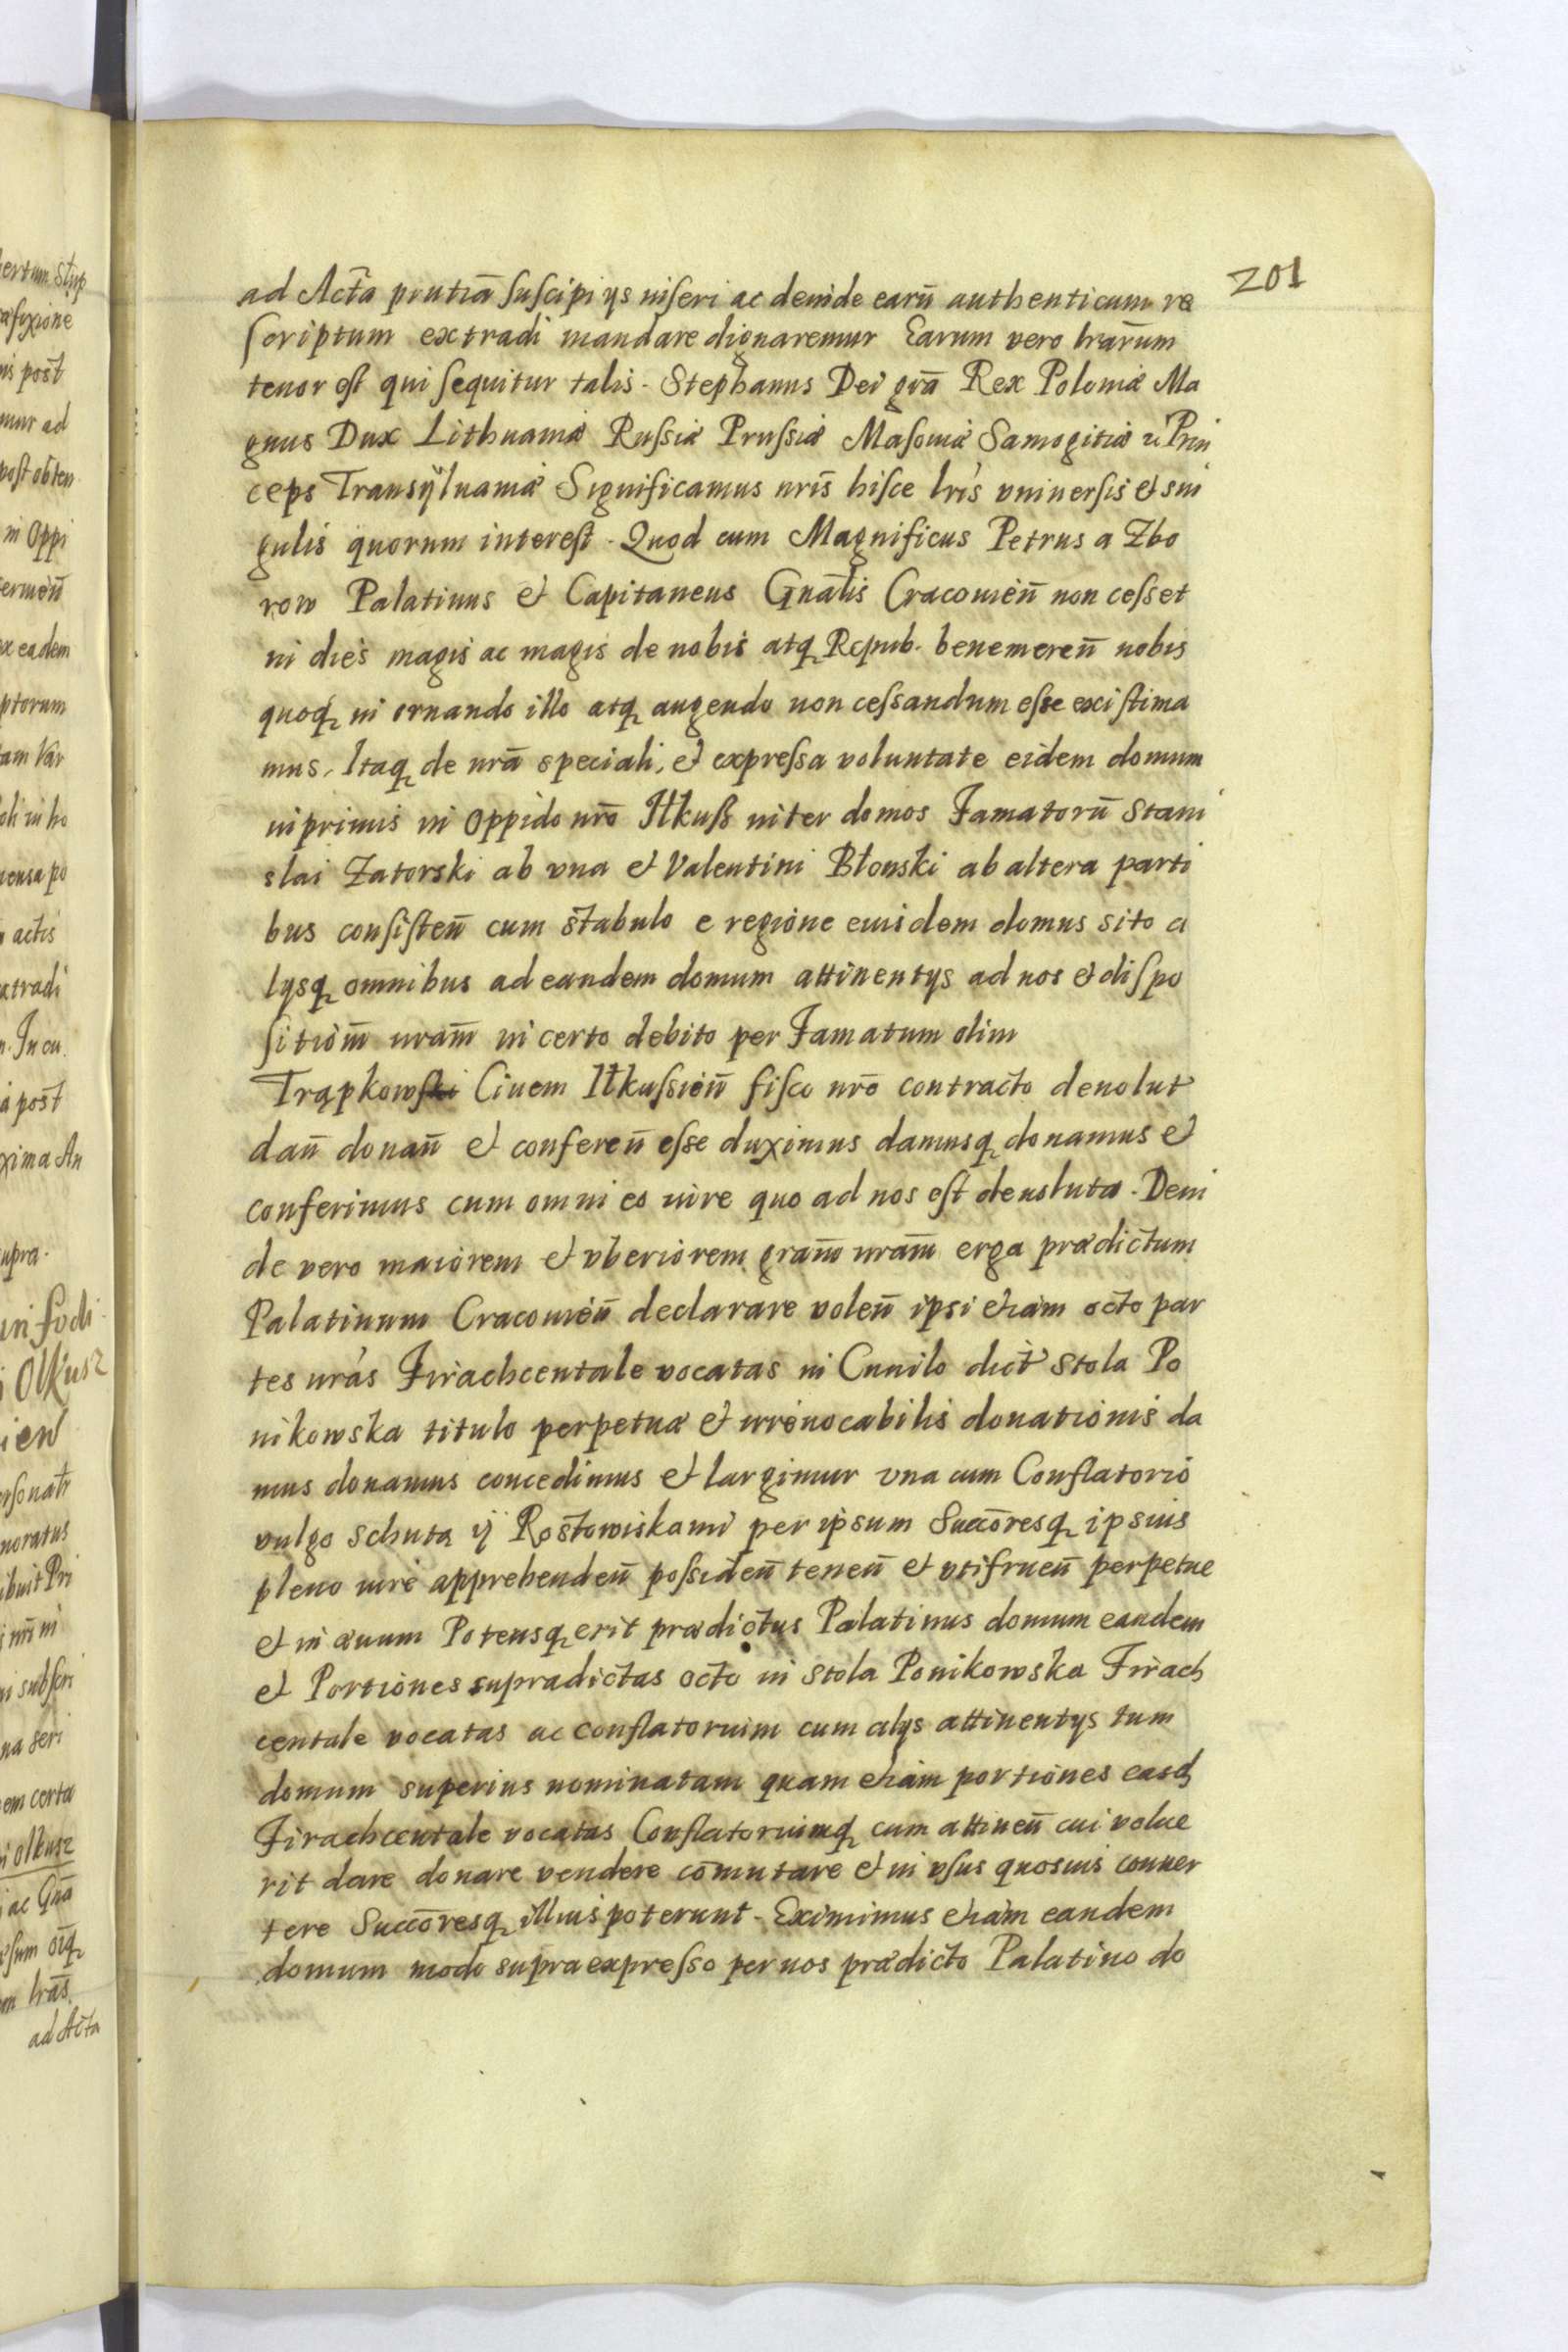 201
ad Acta pñtia suscipi ijs inseri ac deinde earũ authenticum re
scriptum extradi mandare dignaremur Earum vero lrarum
tenor est qui sequitur talis. Stephanus Dei grã Rex Poloniæ Ma
gnus Dux Lithuaniæ Russiæ Prussiæ Masoniæ Samogitiæ Prin
ceps Transÿluaniæ Significamus nris hisce lris vniuersis et sin
gulis quorum interest. Quod cum Magnificus Petrus a Zbo
row Palatinus et Capitaneus Gnalis Cracouieñ non cesset
in dies magis ac magis de nobis atq Repub. benemereñ nobis
quoq in ornando illo atq augendo non cessandum esse existima
mus. Itaq de nrã speciali, et expressa voluntate eidem domum
inprimis in oppido nrõ Ilkuß inter domos Famatorũ Stani
slai Zatorski ab vna et Valentini Błonski ab altera parti
bus consisteñ cum stabulo e regione eiusdem domus sito a
lijsq omnibus ad eandem domum attinentijs ad nos et dispo
sitiom̃ nram̃ in certo debito per Famatum olim
Trąpkowski Ciuem Ilkussieñ fisco nrõ contracto deuolut
dañ donañ et confereñ esse duximus damusq donamus et
conferimus cum omni eo iure quo ad nos est deuoluta. Dein
de vero maiorem et vberiorem gram̃ nram̃ erga prædictum
Palatinum Cracouieñ declarare voleñ ipsi etiam octo par
tes nras Firachcentale vocatas in Cunilo dict stola Po
nikowska titulo perpetuæ et irreuocabilis donationis da
mus donamus concedimus et largimur vna cum Conflatorio
vulgo schutą ÿ Rostowiskami per ipsum Succõresq ipsius
pleno iure apprehendeñ possideñ teneñ et vtifrueñ perpetue
et in æuum Potensq erit prædictus Palatinus domum eandem
et Portiones supradictas octo in stola Ponikowska Firach
centale vocatas ac conflatorium cum alijs attinentijs tum
domum superius nominatam quam etiam portiones easd
Firachcentale vocatas Conflatoriumq cum attineñ cui volue
rit dare donare vendere com̃utare et in vsus quosuis conuer
tere Succõresq illius poterunt. Eximimus etiam eandem
domum modo supra expresso per nos prædicto Palatino do